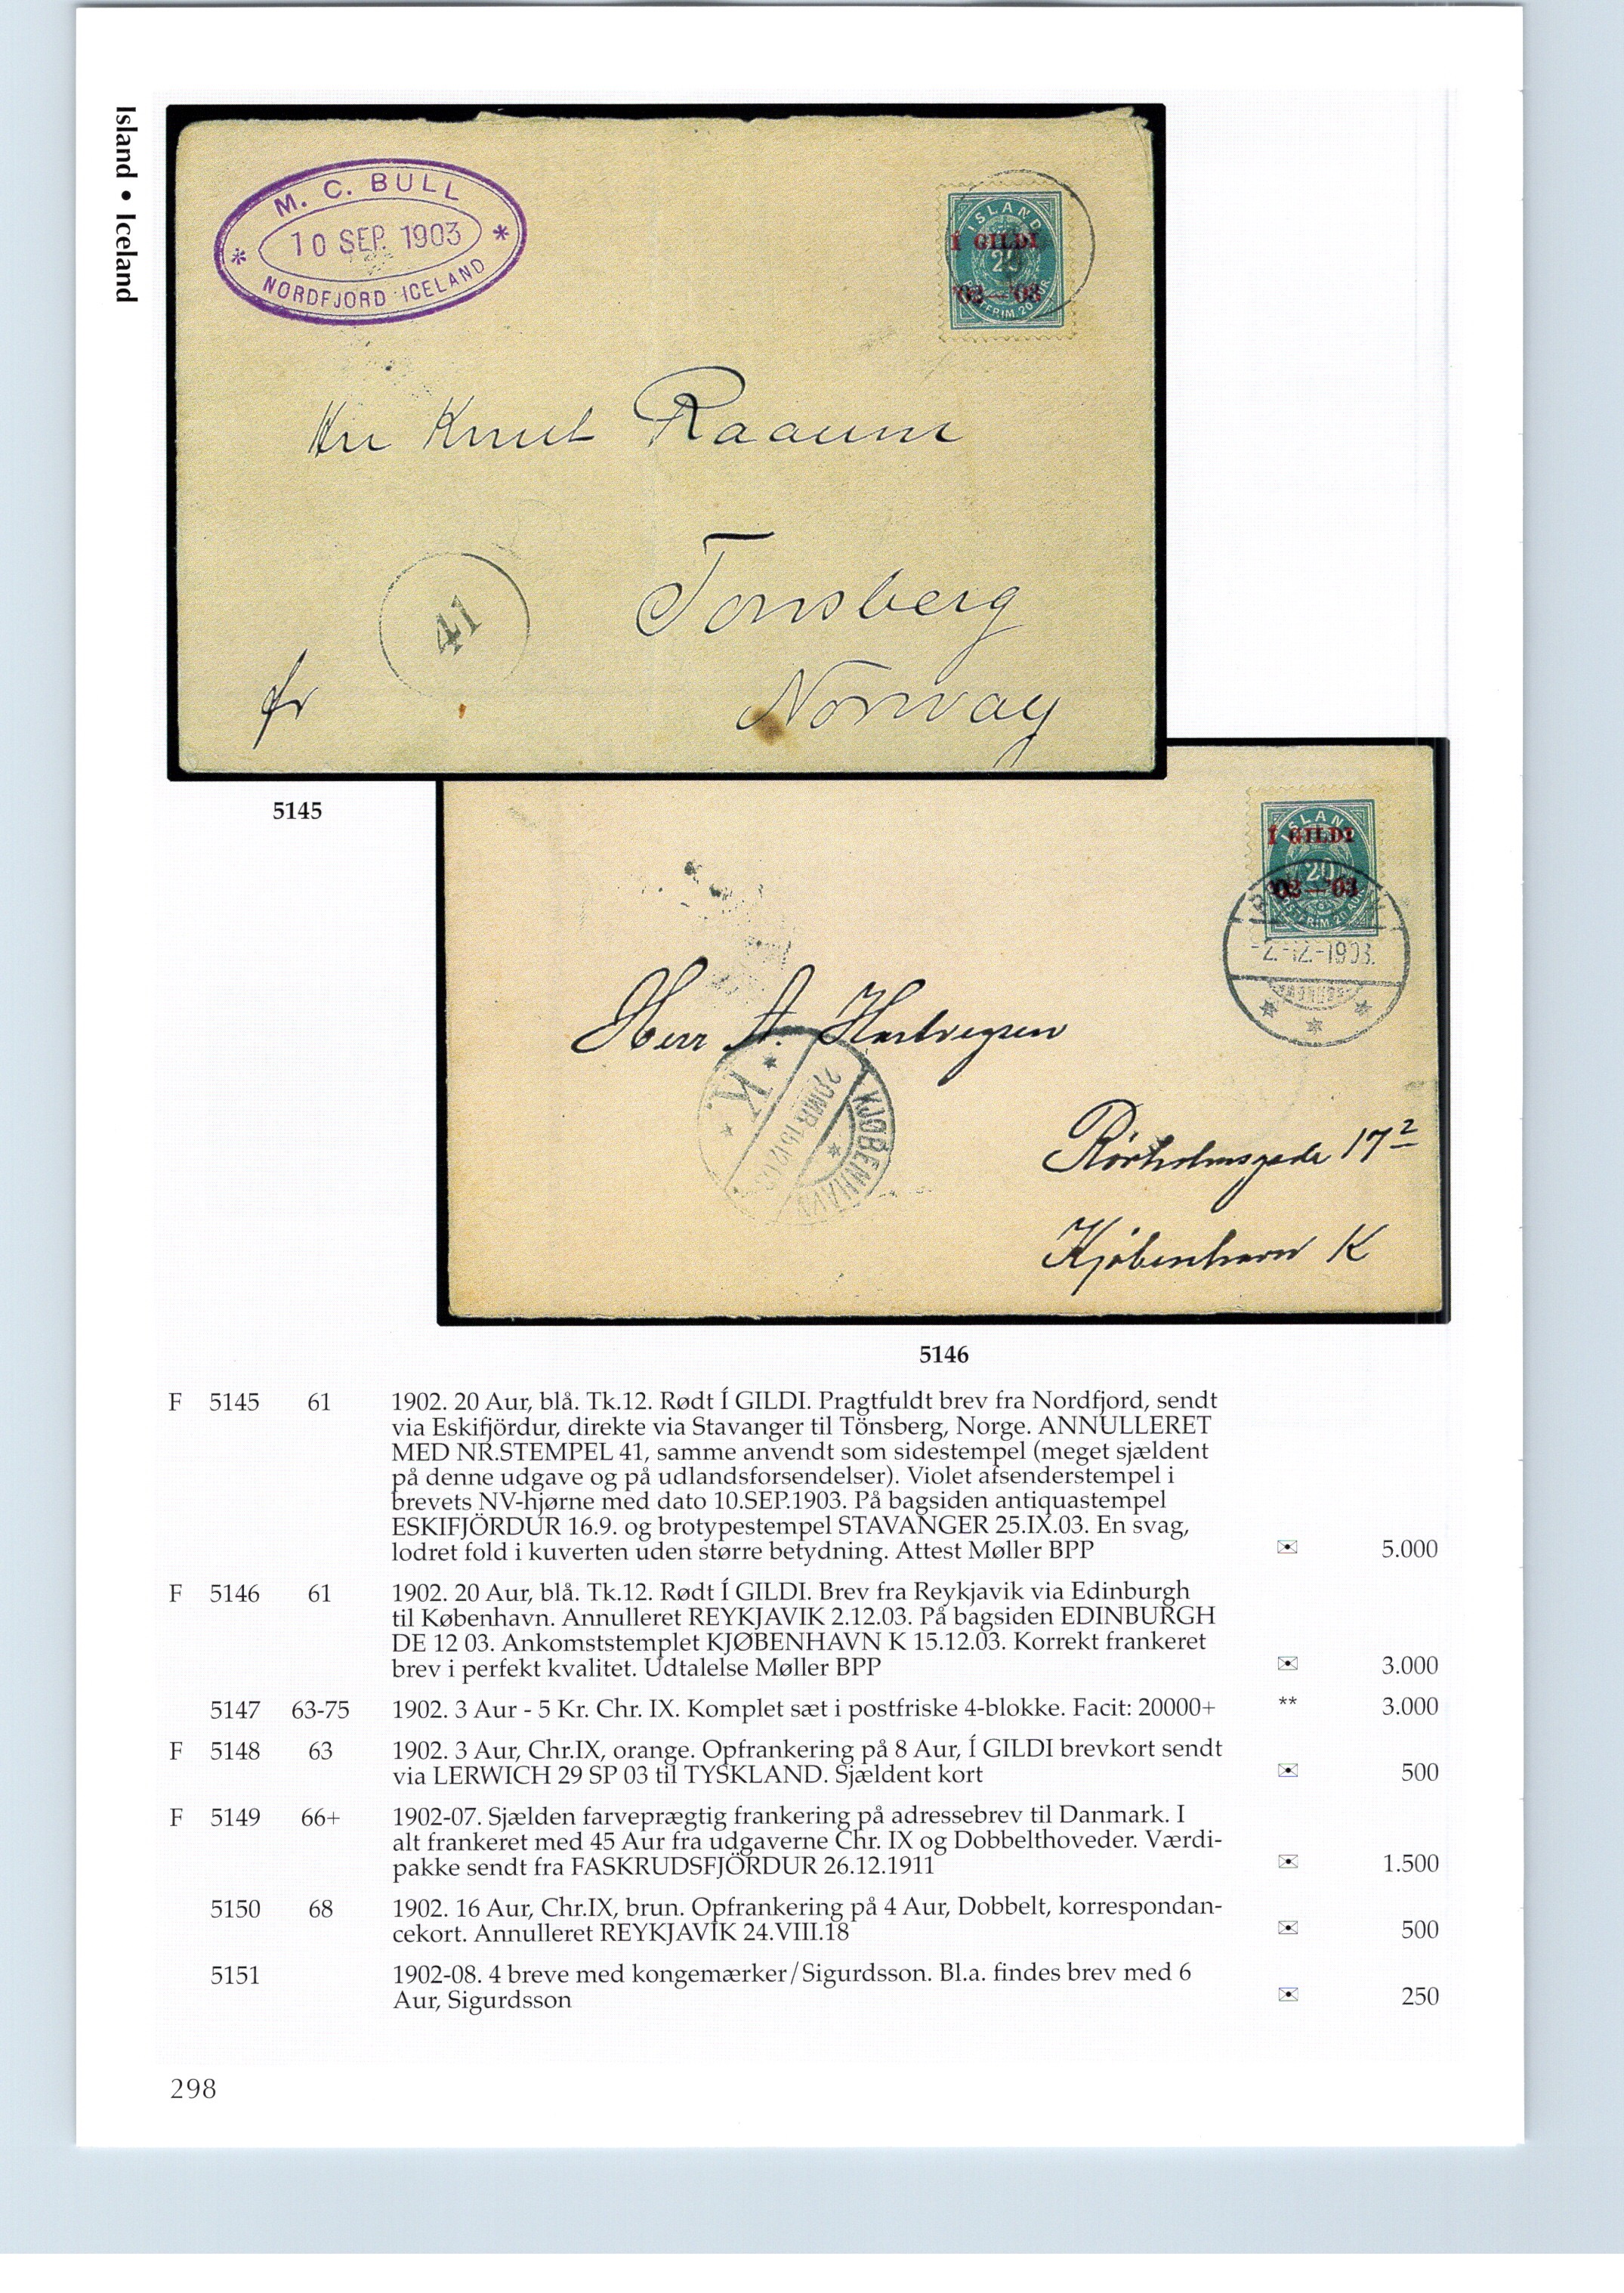 Island • Iceland
M. C. BULL
10 SEP. 1903
NORDFJORD ICELAND
ISLAND
Í GILDI
20
'02–'03
FRIM. 20 AUR
Knut Raaum
41
Tonsberg
fr
Norway
5145
ISLAND
Í GILDI
20
'02–'03
FRIM. 20 AUR
-2.-12.-1903.
Herr A. Hartvigsen
K.
15.12.03
KJØBENHAVN
Rörholmsgade 17²
Kjöbenhavn K
5146
F 5145 61 1902. 20 Aur, blå. Tk.12. Rødt Í GILDI. Pragtfuldt brev fra Nordfjord, sendt
via Eskifjördur, direkte via Stavanger til Tönsberg, Norge. ANNULLERET
MED NR.STEMPEL 41, samme anvendt som sidestempel (meget sjældent
på denne udgave og på udlandsforsendelser). Violet afsenderstempel i
brevets NV-hjørne med dato 10.SEP.1903. På bagsiden antiquastempel
ESKIFJÖRDUR 16.9. og brotypestempel STAVANGER 25.IX.03. En svag,
lodret fold i kuverten uden større betydning. Attest Møller BPP ✉ 5.000
F 5146 61 1902. 20 Aur, blå. Tk.12. Rødt Í GILDI. Brev fra Reykjavik via Edinburgh
til København. Annulleret REYKJAVIK 2.12.03. På bagsiden EDINBURGH
DE 12 03. Ankomststemplet KJØBENHAVN K 15.12.03. Korrekt frankeret
brev i perfekt kvalitet. Udtalelse Møller BPP ✉ 3.000
5147 63-75 1902. 3 Aur - 5 Kr. Chr. IX. Komplet sæt i postfriske 4-blokke. Facit: 20000+ ** 3.000
F 5148 63 1902. 3 Aur, Chr.IX, orange. Opfrankering på 8 Aur, Í GILDI brevkort sendt
via LERWICH 29 SP 03 til TYSKLAND. Sjældent kort ✉ 500
F 5149 66+ 1902-07. Sjælden farveprægtig frankering på adressebrev til Danmark. I
alt frankeret med 45 Aur fra udgaverne Chr. IX og Dobbelthoveder. Værdi-
pakke sendt fra FASKRUDSFJÖRDUR 26.12.1911 ✉ 1.500
5150 68 1902. 16 Aur, Chr.IX, brun. Opfrankering på 4 Aur, Dobbelt, korrespondan-
cekort. Annulleret REYKJAVIK 24.VIII.18 ✉ 500
5151 1902-08. 4 breve med kongemærker/Sigurdsson. Bl.a. findes brev med 6
Aur, Sigurdsson ✉ 250
298